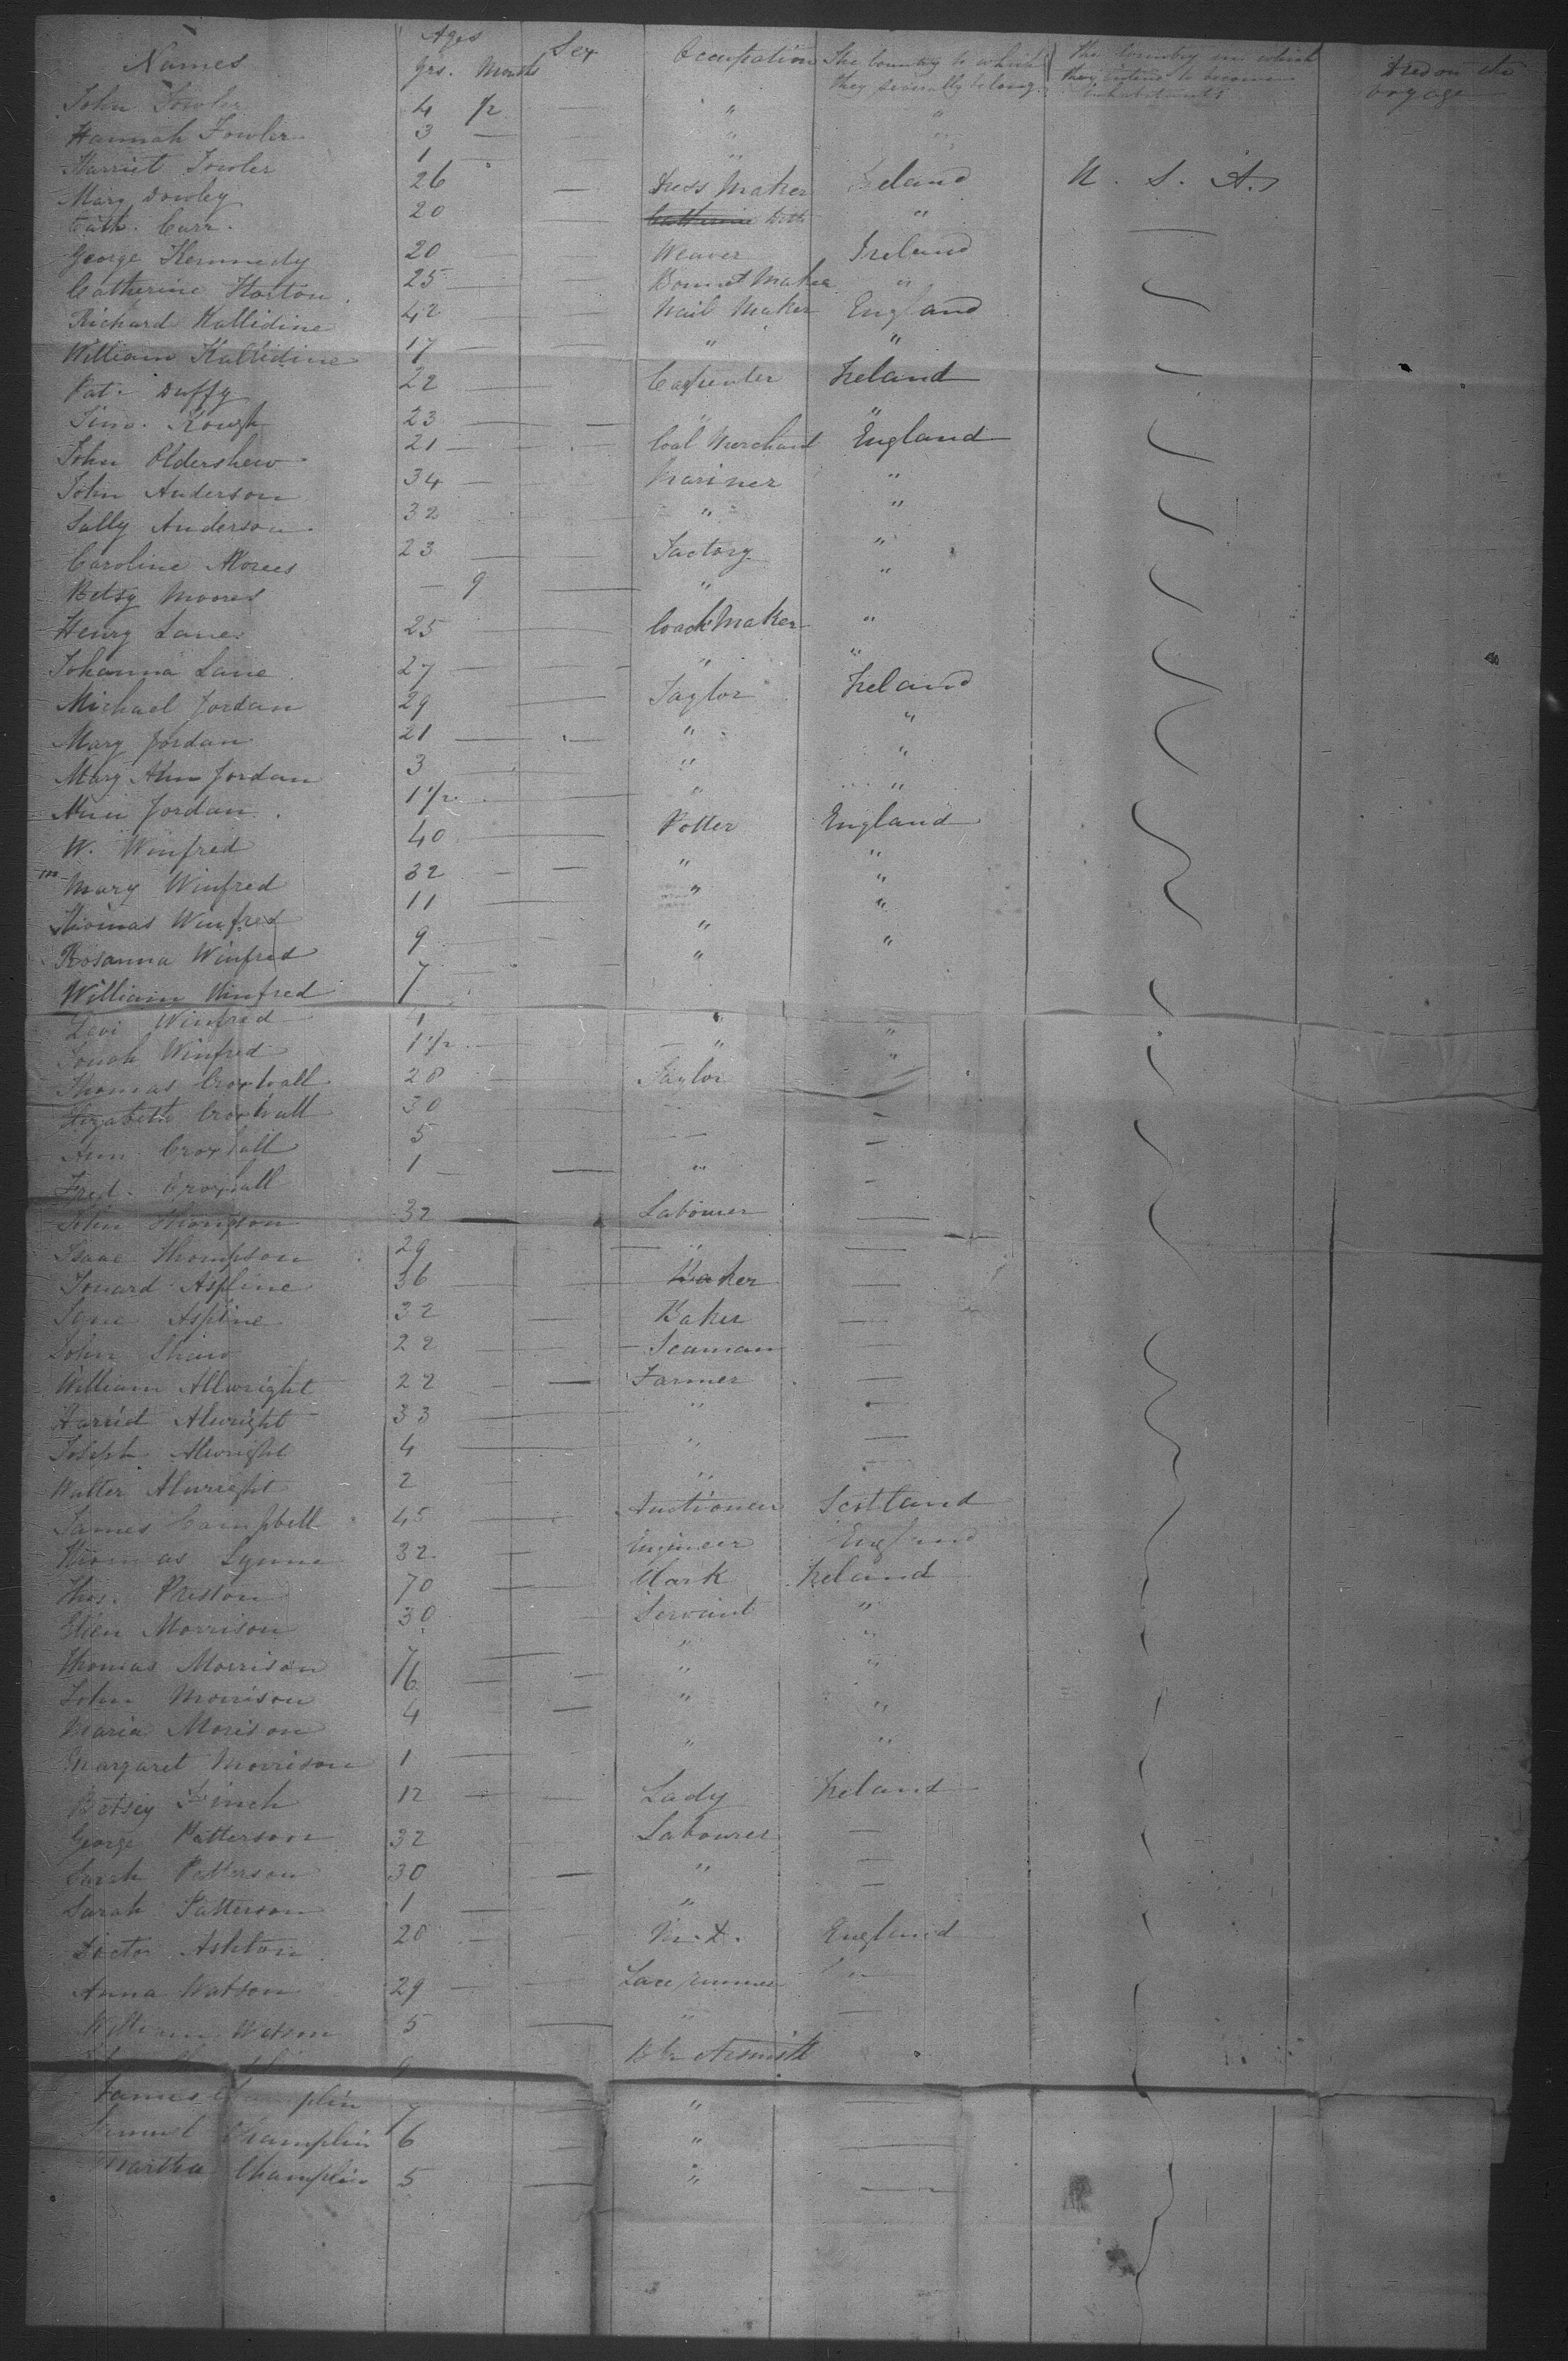 Names Ages Sex Occupation The Country to which The Country in which Died on the
yrs. Months they severally belong they intend to become voyage
inhabitants
John Fowler 4 1/2 — " "
Hannah Fowler 3 — " "
Harriet Fowler 1 "
Mary Dowley 26 — Dress Maker Ireland U. S. A.
Cath. Carr. 20 — "
George Kennedy 20 — Weaver Ireland
Catherine Horton 25 — — Bonnet Maker "
Richard Hallidine 42 — — Nail Maker England
William Hallidine 17 — — " "
Pat. Duffy 22 — — Carpenter Ireland
23 — — " "
John Oldershew 21 — Coal Merchant England
John Anderson 34 — — Mariner "
Sally Anderson 32 — " "
Caroline Moores 23 — — Factory "
Betsy Moores — 9 — " "
Henry Lane 25 — — Coach Maker "
Johanna Lane 27 — — " "
Michael Jordan 29 — Taylor Ireland
Mary Jordan 21 — — " "
Mary Ann Jordan 3 — — " "
Ann Jordan 1 1/2 — " "
W. Winfred 40 — — Potter England
Mary Winfred 32 — — " "
Thomas Winfred 11 — — " "
Rosanna Winfred 9 — " "
William Winfred 7 — — "
Levi Winfred 1 — " "
Winfred 1 1/2 — — " "
Thomas Croxhall 28 — Taylor
Elizabeth Croxhall 30 — —
Ann Croxhall 5 — —
Fred. Croxhall 1 — — " —
John Thompson 32 — Labourer —
Isaac Thompson 29 — " —
Aspline 36 — — Baker —
Jane Aspline 32 — — Baker —
John Shaw 22 — Seaman —
William Allwright 22 — — Farmer —
Harriet Alwright 33 — — " —
Joseph Alwright 4 — " —
Walter Alwright 2 — " —
James Campbell 45 — Auctioneer Scotland
Thomas Lynn 32 — Engineer England
Thos. Preston 70 — Clark Ireland
Ellen Morrison 30 — Servant "
Thomas Morrison 7 — " "
John Morrison 6 — — " "
Maria Morison 4 — " "
Margaret Morrison 1 — " "
Betsey Finch 12 — — Lady Ireland
George Patterson 32 — Labourer —
Sarah Patterson 30 — " —
Sarah Patterson 1 — " —
Doctor Ashton 20 — — M.D. England
Anna Watson 29 — — Lace Runner "
William Watson 5 — " —
9
James Champlin 7 — "
Samuel Champlin 6 — " —
Martha Champlin 5 — " —